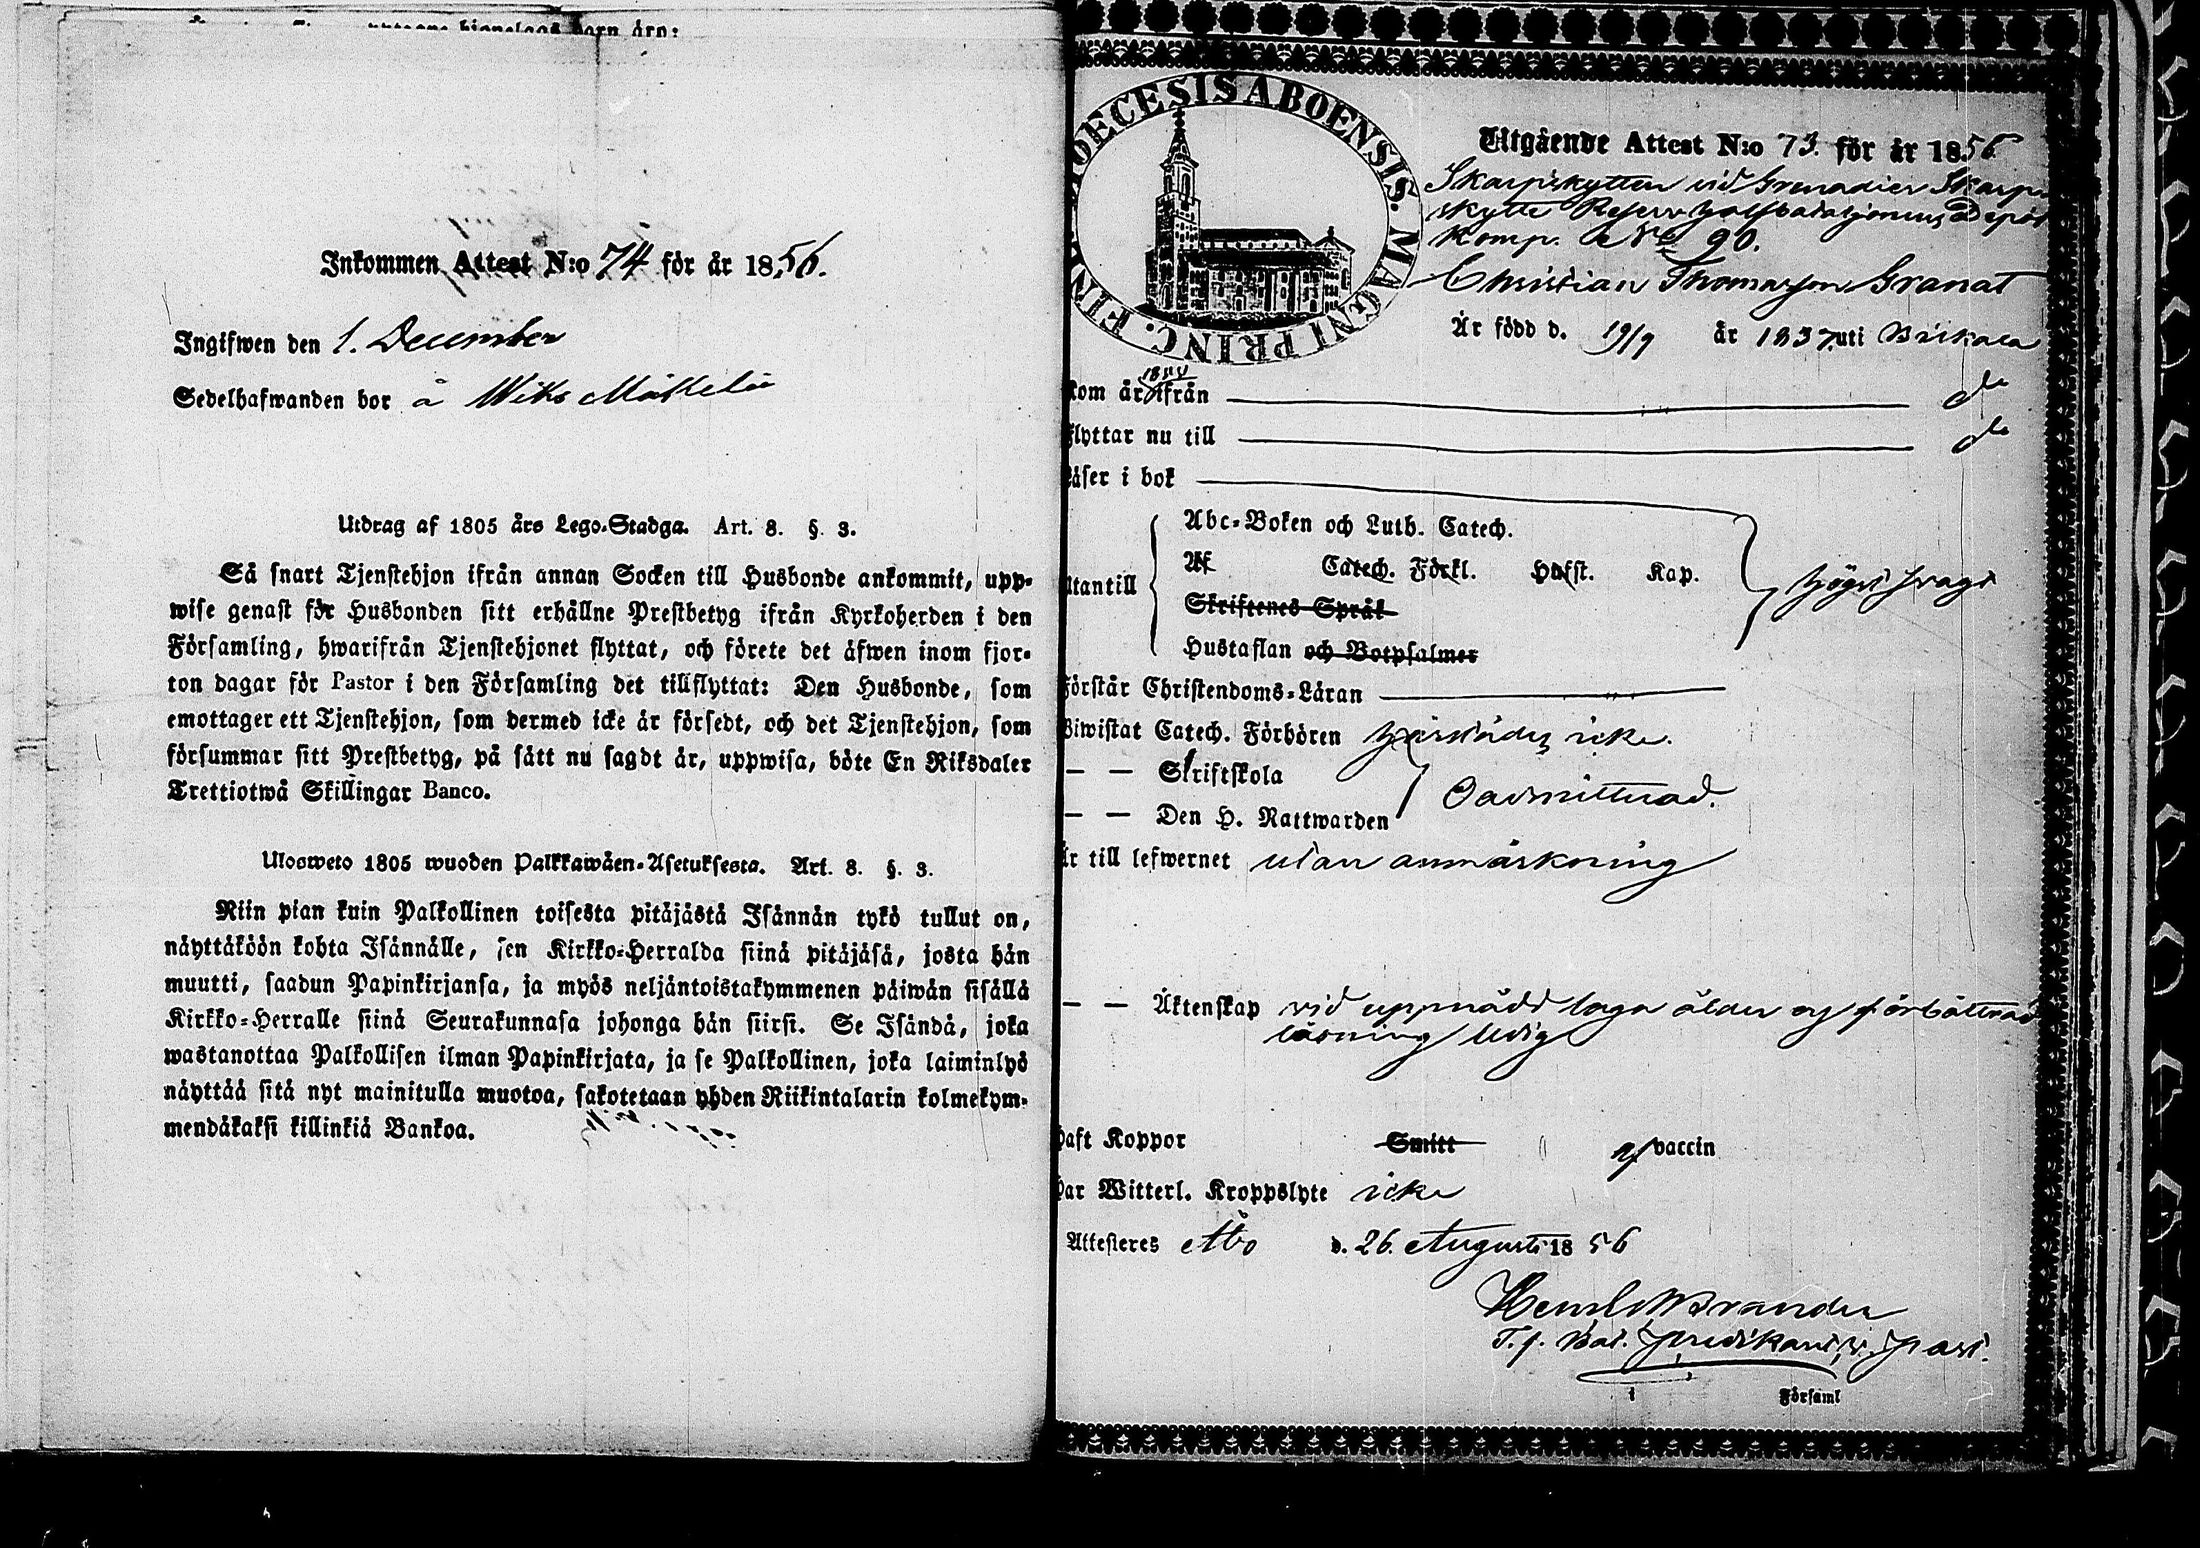 barn äro:
Inkommen Attest N:o 74 för år 1856.
Ingifwen den 1. December
Sedelhafwanden bor å Wiks Mäkkelä
Utdrag af 1805 års Lego-Stadga. Art. 8. §. 3.
Så snart Tjenstehjon ifrån annan Socken till Husbonde ankommit, upp-
wise genast för Husbonden sitt erhållne Prestbetyg ifrån Kyrkoherden i den
Församling, hwarifrån Tjenstehjonet flyttat, och förete det äfwen inom fjor-
ton dagar för Pastor i den Församling det tillflyttat: Den Husbonde, som
emottager ett Tjenstehjon, som dermed icke är försedt, och det Tjenstehjon, som
försummar sitt Prestbetyg, på sätt nu sagdt är, uppwisa, böte En Riksdaler
Trettiotwå Skillingar Banco.
Ulosweto 1805 wuoden Palkkawäen-Asetuksesta. Art. 8. §. 3.
Niin pian kuin Palkollinen toisesta pitäjästä Isännän tykö tullut on,
näyttäköön kohta Isännälle, sen Kirkko-Herralda siinä pitäjäsä, josta hän
muutti, saadun Papinkirjansa, ja myös neljäntoistakymmenen päiwän sisällä
Kirkko-Herralle siinä Seurakunnasa johonga hän siirsi. Se Isändä, joka
wastanottaa Palkollisen ilman Papinkirjata, ja se Palkollinen, joka laiminlyö
näyttää sitä nyt mainitulla muotoa, sakotetaan yhden Riikintalarin kolmekym-
mendäkaksi killinkiä Bankoa.
DIOECESIS ABOENSIS. MAGNI PRINC. FIN
Utgående Attest N:o 73. för år 1856
Skarpskytten vid Grenadier Skarp-
skytte Reserv Depôt
Komp. No 90.
Christian Thomasson Granat
Är född d. 19/9 år 1837 uti Birkala
kom år ifrån do
flyttar nu till do
Läser i bok
Abc-Boken och Luth. Catech.
Af Catech. Förkl. Husst. Kap.
Utantill högst svagt
Skriftenes Språk
Hustaflan och Botpsalmer
Förstår Christendoms-Läran
Biwistat Catech. Förhören icke.
— — Skriftskola
Oadmitterad.
— — Den H. Nattwarden
Är till lefwernet utan anmärkning
— — Äktenskap vid uppnådd laga ålder och förbättrad
läsning ledig
Haft Koppor Smitt af vaccin
Har Witterl. Kroppslyte icke
Attesteres Åbo d. 26. Augusti 1856
Brander
T. f. Bat. Predikant, v. Past.
i Församl